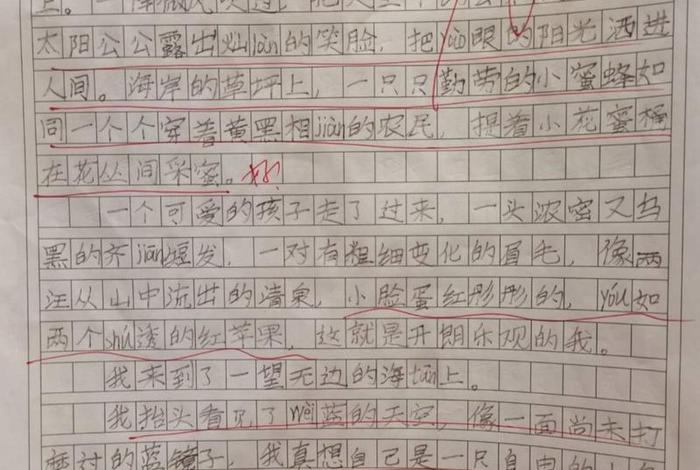 太阳公公露出灿làn的笑脸，把yào眼的阳光洒进
人间。海岸的草坪上，一只只勤劳的小蜜蜂如
同一个个穿着黄黑相jiàn的农民，提着小花蜜桶
在花丛间采蜜。好！
一个可爱的孩子走了过来，一头浓密又乌
黑的齐jiān短发，一对有粗细变化的眉毛，像两
汪从山中流出的清泉，小脸蛋红彤彤的，yóu如
两个shú透的红苹果，这就是开朗乐观的我。
我来到了一望无边的海tān上。
我抬头看见了wèi蓝的天空，像一面尚未打
磨过的蓝镜子，我真想自己是一只自由的